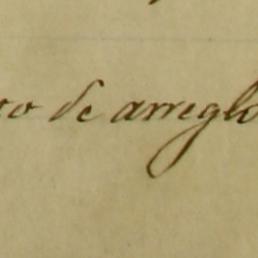 de arreglo